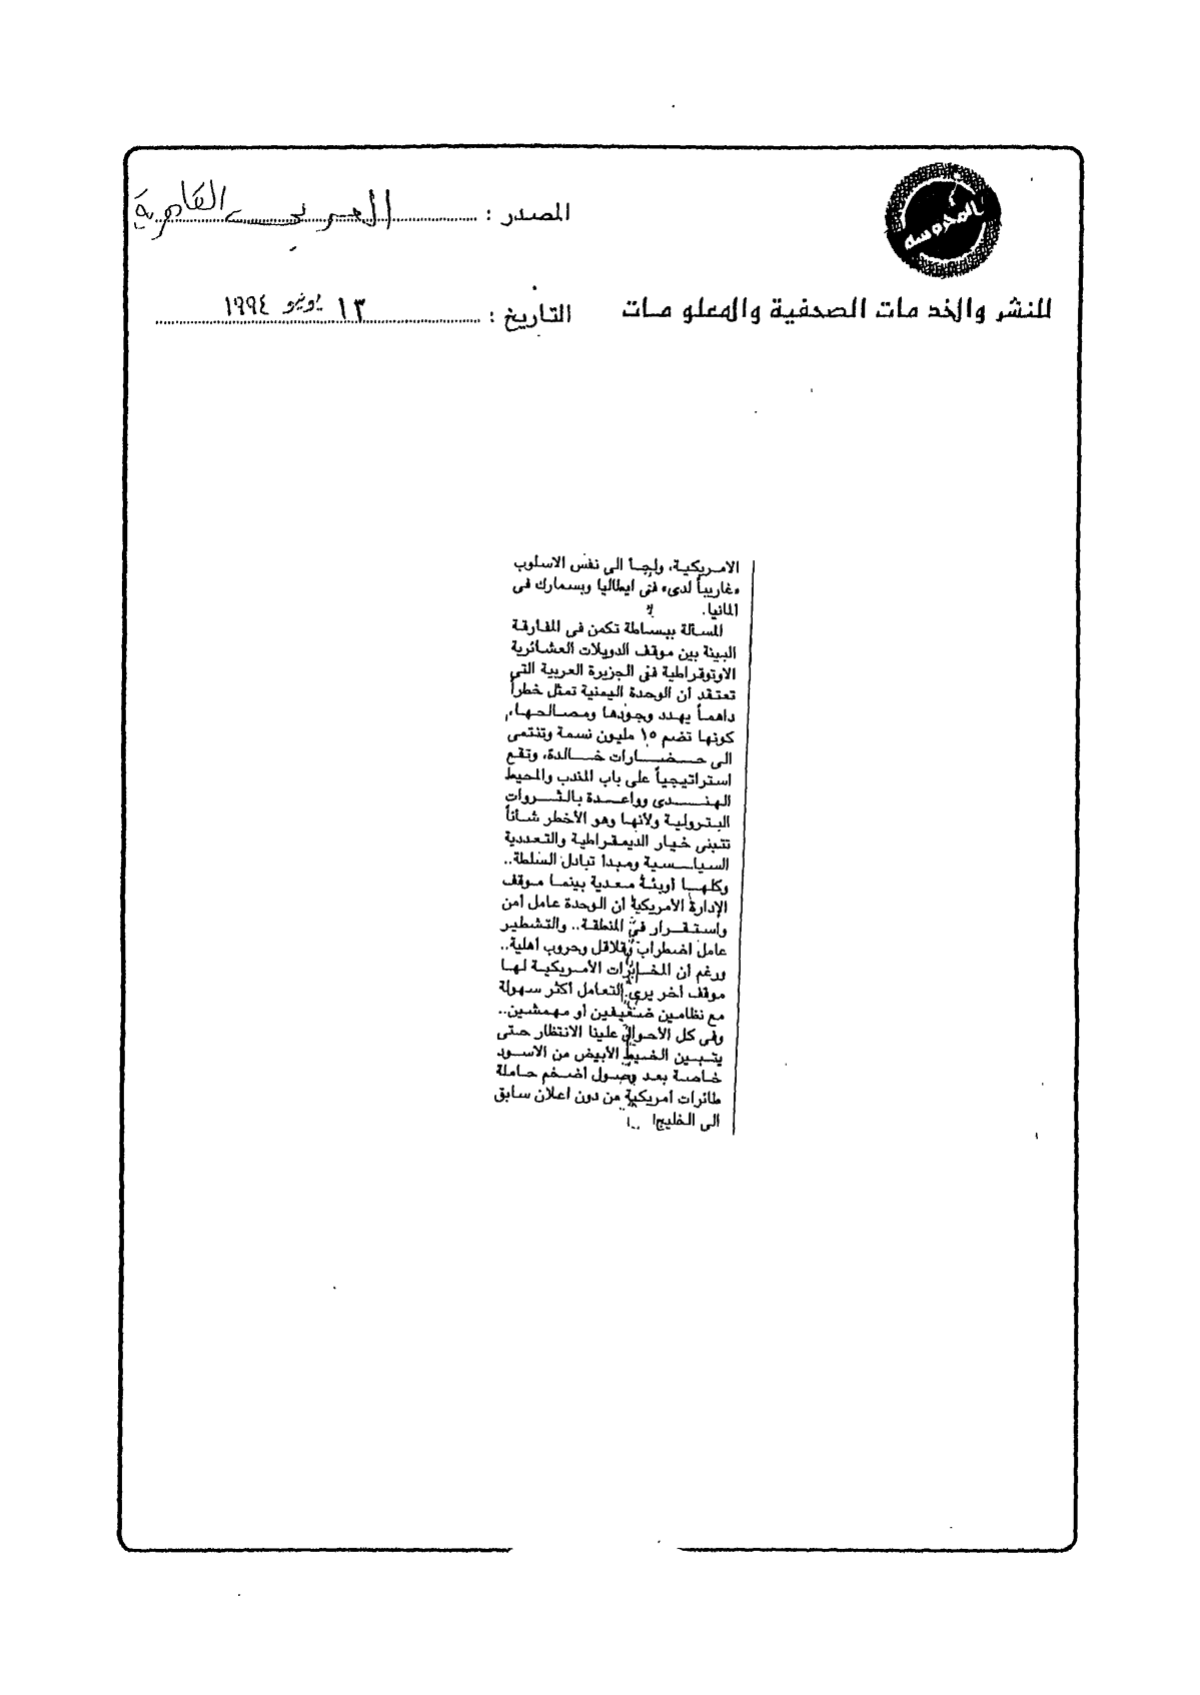 المحروسة
المصدر : العربي القاهرية
للنشر والخدمات الصحفية والمعلومات
التاريخ : ١٣ يونيو ١٩٩٤
الامريكية، ولجأ الى نفس الاسلوب
«غاريبالدى» فى ايطاليا وبسمارك فى
المانيا.
المسألة ببساطة تكمن فى المفارقة
البينة بين موقف الدويلات العشائرية
الاوتوقراطية فى الجزيرة العربية التى
تعتقد أن الوحدة اليمنية تمثل خطراً
داهماً يهدد وجودها ومصالحها،
كونها تضم ١٥ مليون نسمة وتنتمى
الى حضارات خالدة، وتقع
استراتيجياً على باب المندب والمحيط
الهندى وواعدة بالثروات
البترولية ولأنها وهو الأخطر شأناً
تتبنى خيار الديمقراطية والتعددية
السياسية ومبدأ تبادل السلطة..
وكلها أوبئة معدية بينما موقف
الإدارة الأمريكية أن الوحدة عامل أمن
واستقرار في المنطقة.. والتشطير
عامل اضطراب وقلاقل وحروب أهلية..
ورغم أن المخابرات الأمريكية لها
موقف آخر يرى التعامل أكثر سهولة
مع نظامين ضعيفين أو مهمشين..
وفى كل الأحوال علينا الانتظار حتى
يتبين الخيط الأبيض من الاسود
خاصة بعد وصول أضخم حاملة
طائرات أمريكية من دون اعلان سابق
الى الخليج! ..!